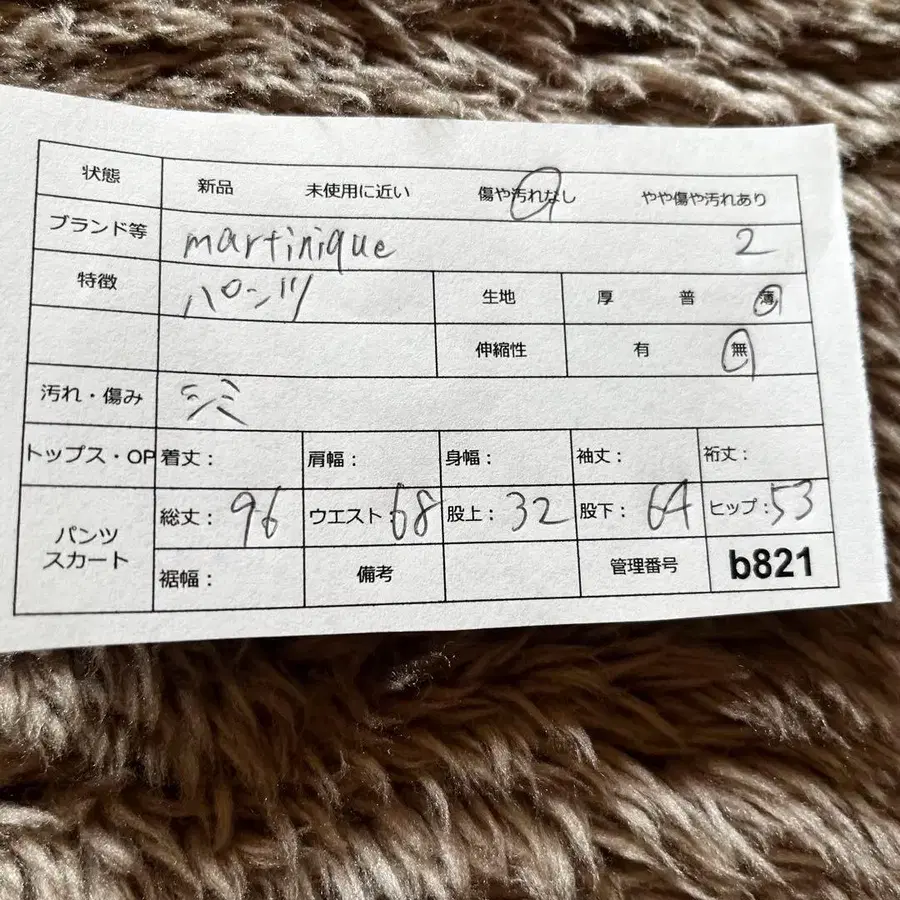 状態 新品 未使用に近い 傷や汚れなし やや傷や汚れあり
ブランド等 martinique 2
特徴 パンツ 生地 厚 普 薄
伸縮性 有 無
汚れ・傷み シミ
トップス・OP 着丈： 肩幅： 身幅： 袖丈： 裄丈：
パンツ スカート 総丈：96 ウエスト68 股上：32 股下：64 ヒップ：53
裾幅： 備考 管理番号 b821